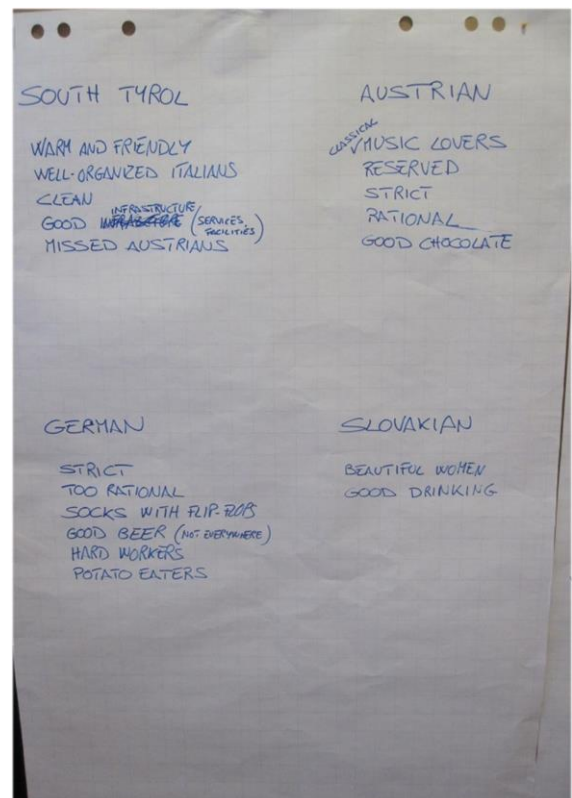 SOUTH TYROL
WARM AND FRIENDLY
WELL-ORGANIZED ITALIANS
CLEAN
GOOD INFRASTRUCTURE (SERVICES, FACILITIES)
MISSED AUSTRIANS
AUSTRIAN
CLASSICAL MUSIC LOVERS
RESERVED
STRICT
RATIONAL
GOOD CHOCOLATE
GERMAN
STRICT
TOO RATIONAL
SOCKS WITH FLIP-FLOPS
GOOD BEER (NOT EVERYWHERE)
HARD WORKERS
POTATO EATERS
SLOVAKIAN
BEAUTIFUL WOMEN
GOOD DRINKING